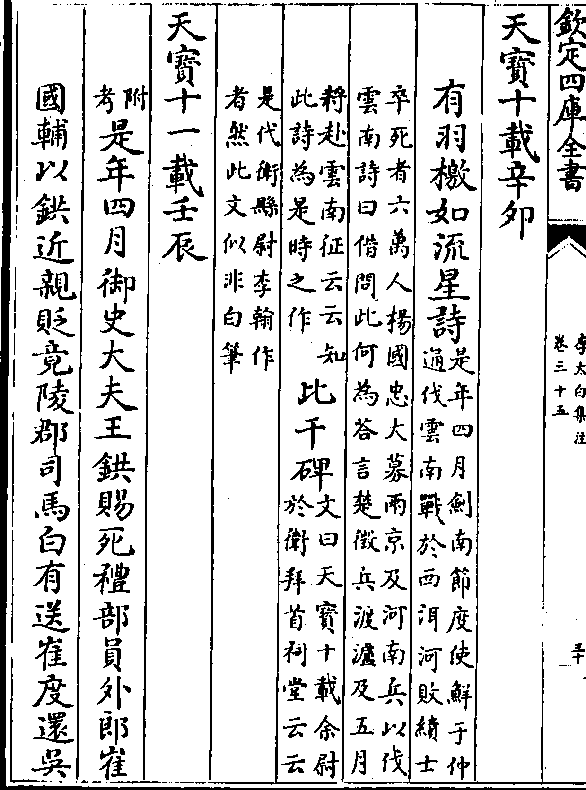 欽定四庫全書
李太白集注
卷三十五
天寶十載辛卯
有羽檄如流星詩
是年四月劍南節度使鮮于仲
通伐雲南戰於西洱河敗績士
卒死者六萬人楊國忠大募兩京及河南兵以伐
雲南詩曰借問此何為答言楚徵兵渡瀘及五月
將赴雲南征云云知
此詩為是時之作
比干碑
文曰天寶十載余尉
於衛拜首祠堂云云
是代衛縣尉李翰作
者然此文似非白筆
天寶十一載壬辰
附考
是年四月御史大夫王鉷賜死禮部員外郎崔
國輔以鉷近親貶竟陵郡司馬白有送崔度還吳